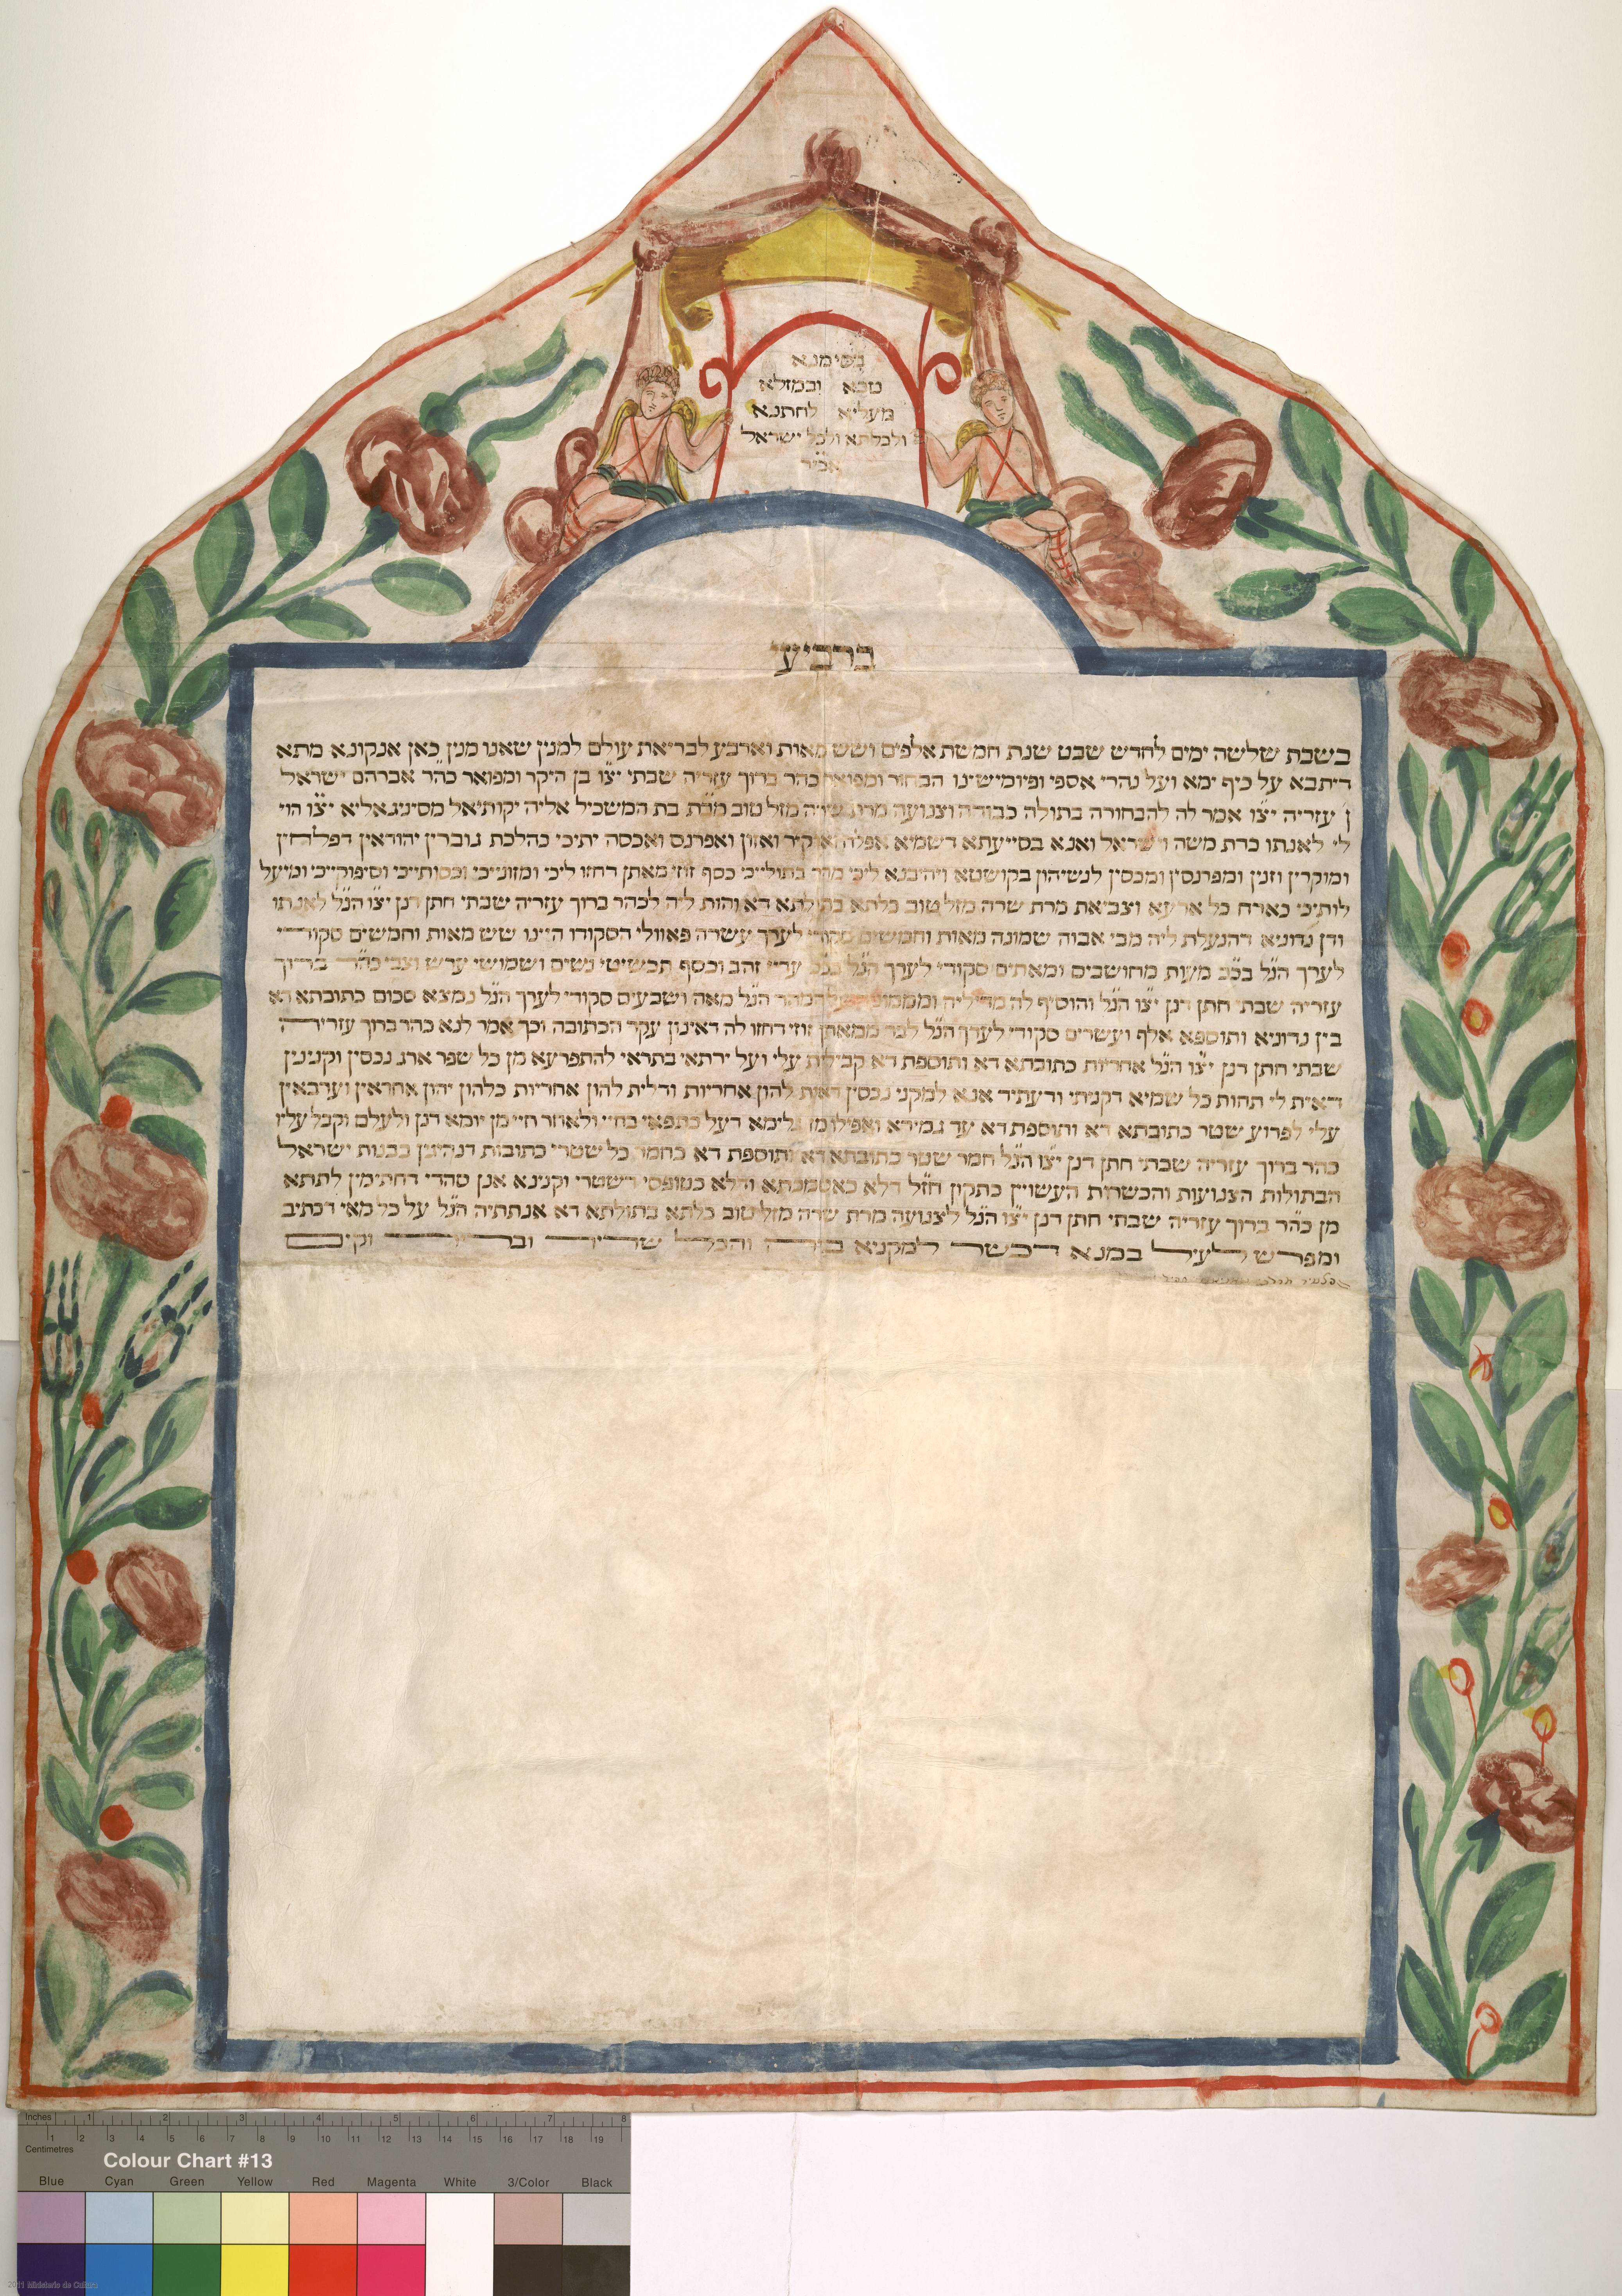 בסימנא
טבא ובמזלא
מעליא לחתנא
ולכלתא ולכל ישראל
אכי״ר
ברביעי
בשבת שלשה ימים לחדש שבט שנת חמשת אלפים ושש מאות וארבע לבריאת עולם למנין שאנו מנין כאן אנקונא מתא
דיתבא על כיף ימא ועל נהרי אספי ופיומישינו הבחור ומפואר כהר ברוך עזריה שבתי יצ״ו בן היקר ומפואר כה״ר אברהם ישראל
עזריה יצ״ו אמר לה להבחורה בתולה כבודה וצנועה מרת שרה מזל טוב מב״ת בת המשכיל אליה יקותיאל מסיניגאליא יצ״ו הוי
לי לאנתו כדת משה וישראל ואנא בסייעתא דשמיא אפלח אוקיר ואזון ואפרנס ואכסה יתיכי כהלכת גוברין יהודאין דפלחין
ומוקרין וזנין ומפרנסין ומכסין לנשיהון בקושטא ויהיבנא ליכי מהר בתוליכי כסף זוזי מאתן דחזו ליכי ומזוניכי וכסותייכי וסיפוקייכי ומיעל
לותיכי כארח כל ארעא וצביאת מרת שרה מזל טוב כלתא בתולתא דא והות ליה לכהר ברוך עזריה שבתי חתן דנן יצ״ו הנ״ל לאנתו
ודן נדוניא דהנעלת ליה מבי אבוה שמונה מאות וחמשים סקודי לערך עשרה פאוולי הסקודו היינו שש מאות וחמשים סקודי
לערך הנ״ל בכ״ב מעות מחושבים ומאתים סקודי לערך הנ״ל בכ״כ עדיי זהב וכסף תכשיטי נשים ושמושי ערש וצבי כה״ר ברוך
עזריה שבתי חתן דנן יצ״ו הנ״ל והוסיף לה מדיליה וממומניה על המהר הנ״ל מאה ושבעים סקודי לערך הנ״ל נמצא סכום כתובתא דא
בין נדוניא ותוספא אלף ועשרים סקודי לערך הנ״ל לבר ממאתן זוזי דחזו לה דאינון עקר הכתובה וכך אמר לנא כהר ברוך עזריה
שבתי חתן דנן יצ״ו הנ״ל אחריות כתובתא דא ותוספת דא קבילית עלי ועל ירתאי בתראי להתפרעא מן כל שפר ארג נכסין וקנינין
דאית לי תחות כל שמיא דקניתי ודעתיד אנא למקני נכסין דאית להון אחריות ודלית להון אחריות כלהון יהון אחראין וערבאין
עלי לפרוע שטר כתובתא דא ותוספת דא עד גמירא ואפילו מן גלימא דעל כתפאי בחיי ולאחר חיי מן יומא דנן ולעלם וקבל עליו
כהר ברוך עזריה שבתי חתן דנן יצ״ו הנ״ל חמר שטר כתובתא דא ותוספת דא כחמר כל שטרי כתובות דנהיגין בבנות ישראל
הבתולות הצנועות והכשרות העשויין כתקון חז״ל דלא כאסמכתא ודלא כטופסי דשטרי וקנינא אנן סהדי דחתימין לתתא
מן כה״ר ברוך עזריה שבתי חתן דנן יצ״ו הנ״ל לצנועה מרת שרה מזל טוב כלתא בתולתא דא אנתתיה הנ״ל על כל מאי דכתיב
ומפרש לעיל במנא דכשר למקניא ביה והכל שריר וברור וקים